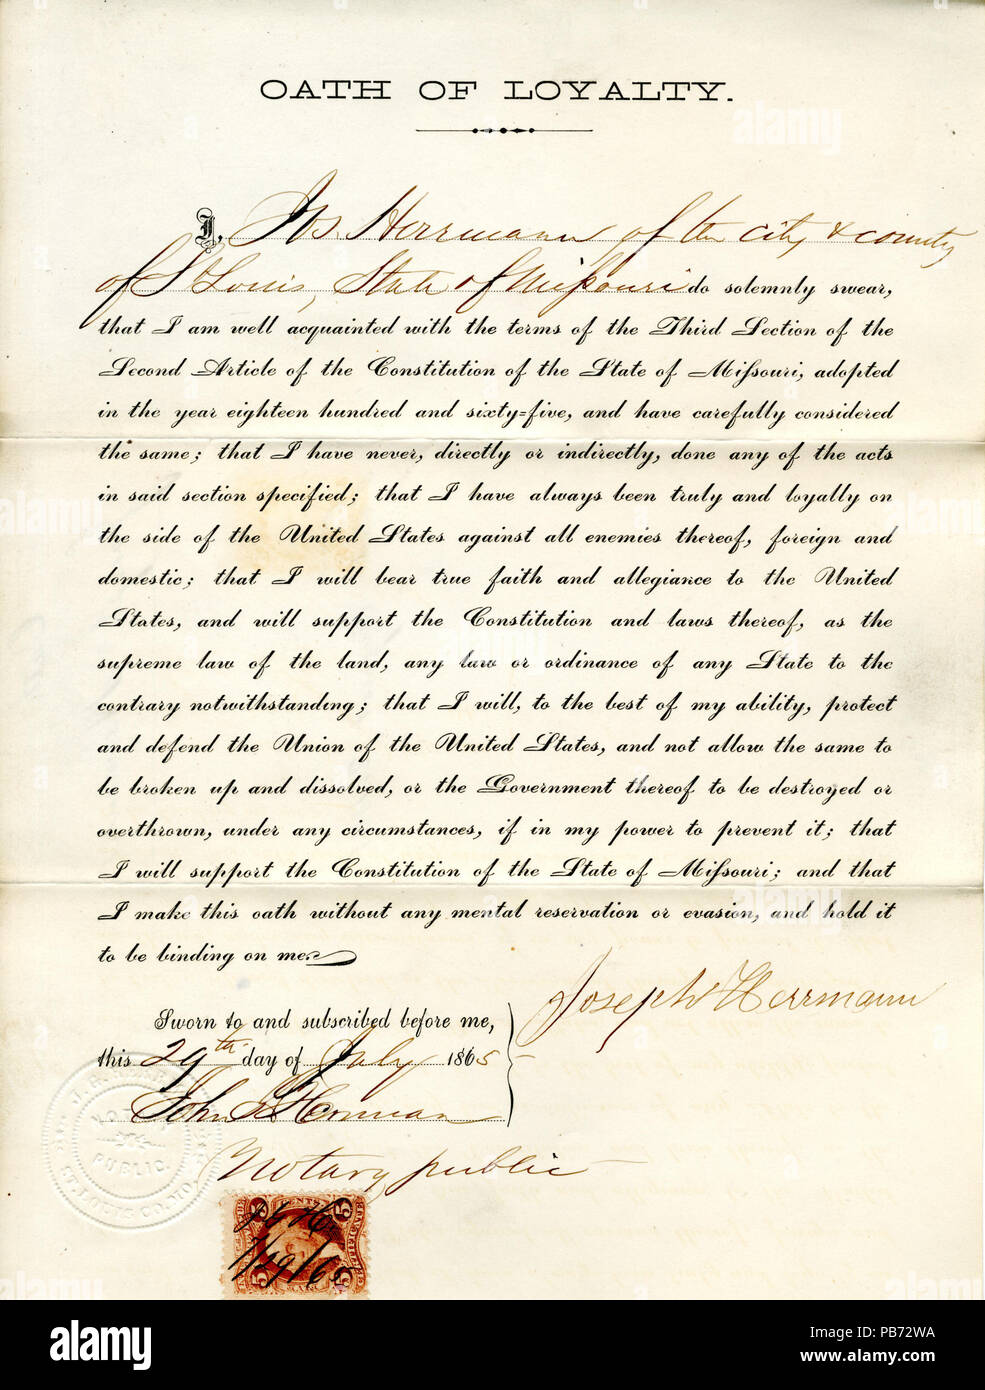 OATH OF LOYALTY.
I, Jos. Herrmann of the city & county
of St Louis, State of Missouri do solemnly swear,
that I am well acquainted with the terms of the Third Section of the
Second Article of the Constitution of the State of Missouri, adopted
in the year eighteen hundred and sixty=five, and have carefully considered
the same; that I have never, directly or indirectly, done any of the acts
in said section specified; that I have always been truly and loyally on
the side of the United States against all enemies thereof, foreign and
domestic; that I will bear true faith and allegiance to the United
States, and will support the Constitution and laws thereof, as the
supreme law of the land, any law or ordinance of any State to the
contrary notwithstanding; that I will, to the best of my ability, protect
and defend the Union of the United States, and not allow the same to
be broken up and dissolved, or the Government thereof to be destroyed or
overthrown, under any circumstances, if in my power to prevent it; that
I will support the Constitution of the State of Missouri; and that
I make this oath without any mental reservation or evasion, and hold it
to be binding on me.
Joseph Herrmann
Sworn to and subscribed before me,
this 29th day of July 1865
John Herman
Notary public
NOT
PUBLIC
ST. LOUIS CO. MO.
5 CENTS 5
7/29/65
5 5
alamy
Image ID: PB72WA
www.alamy.com